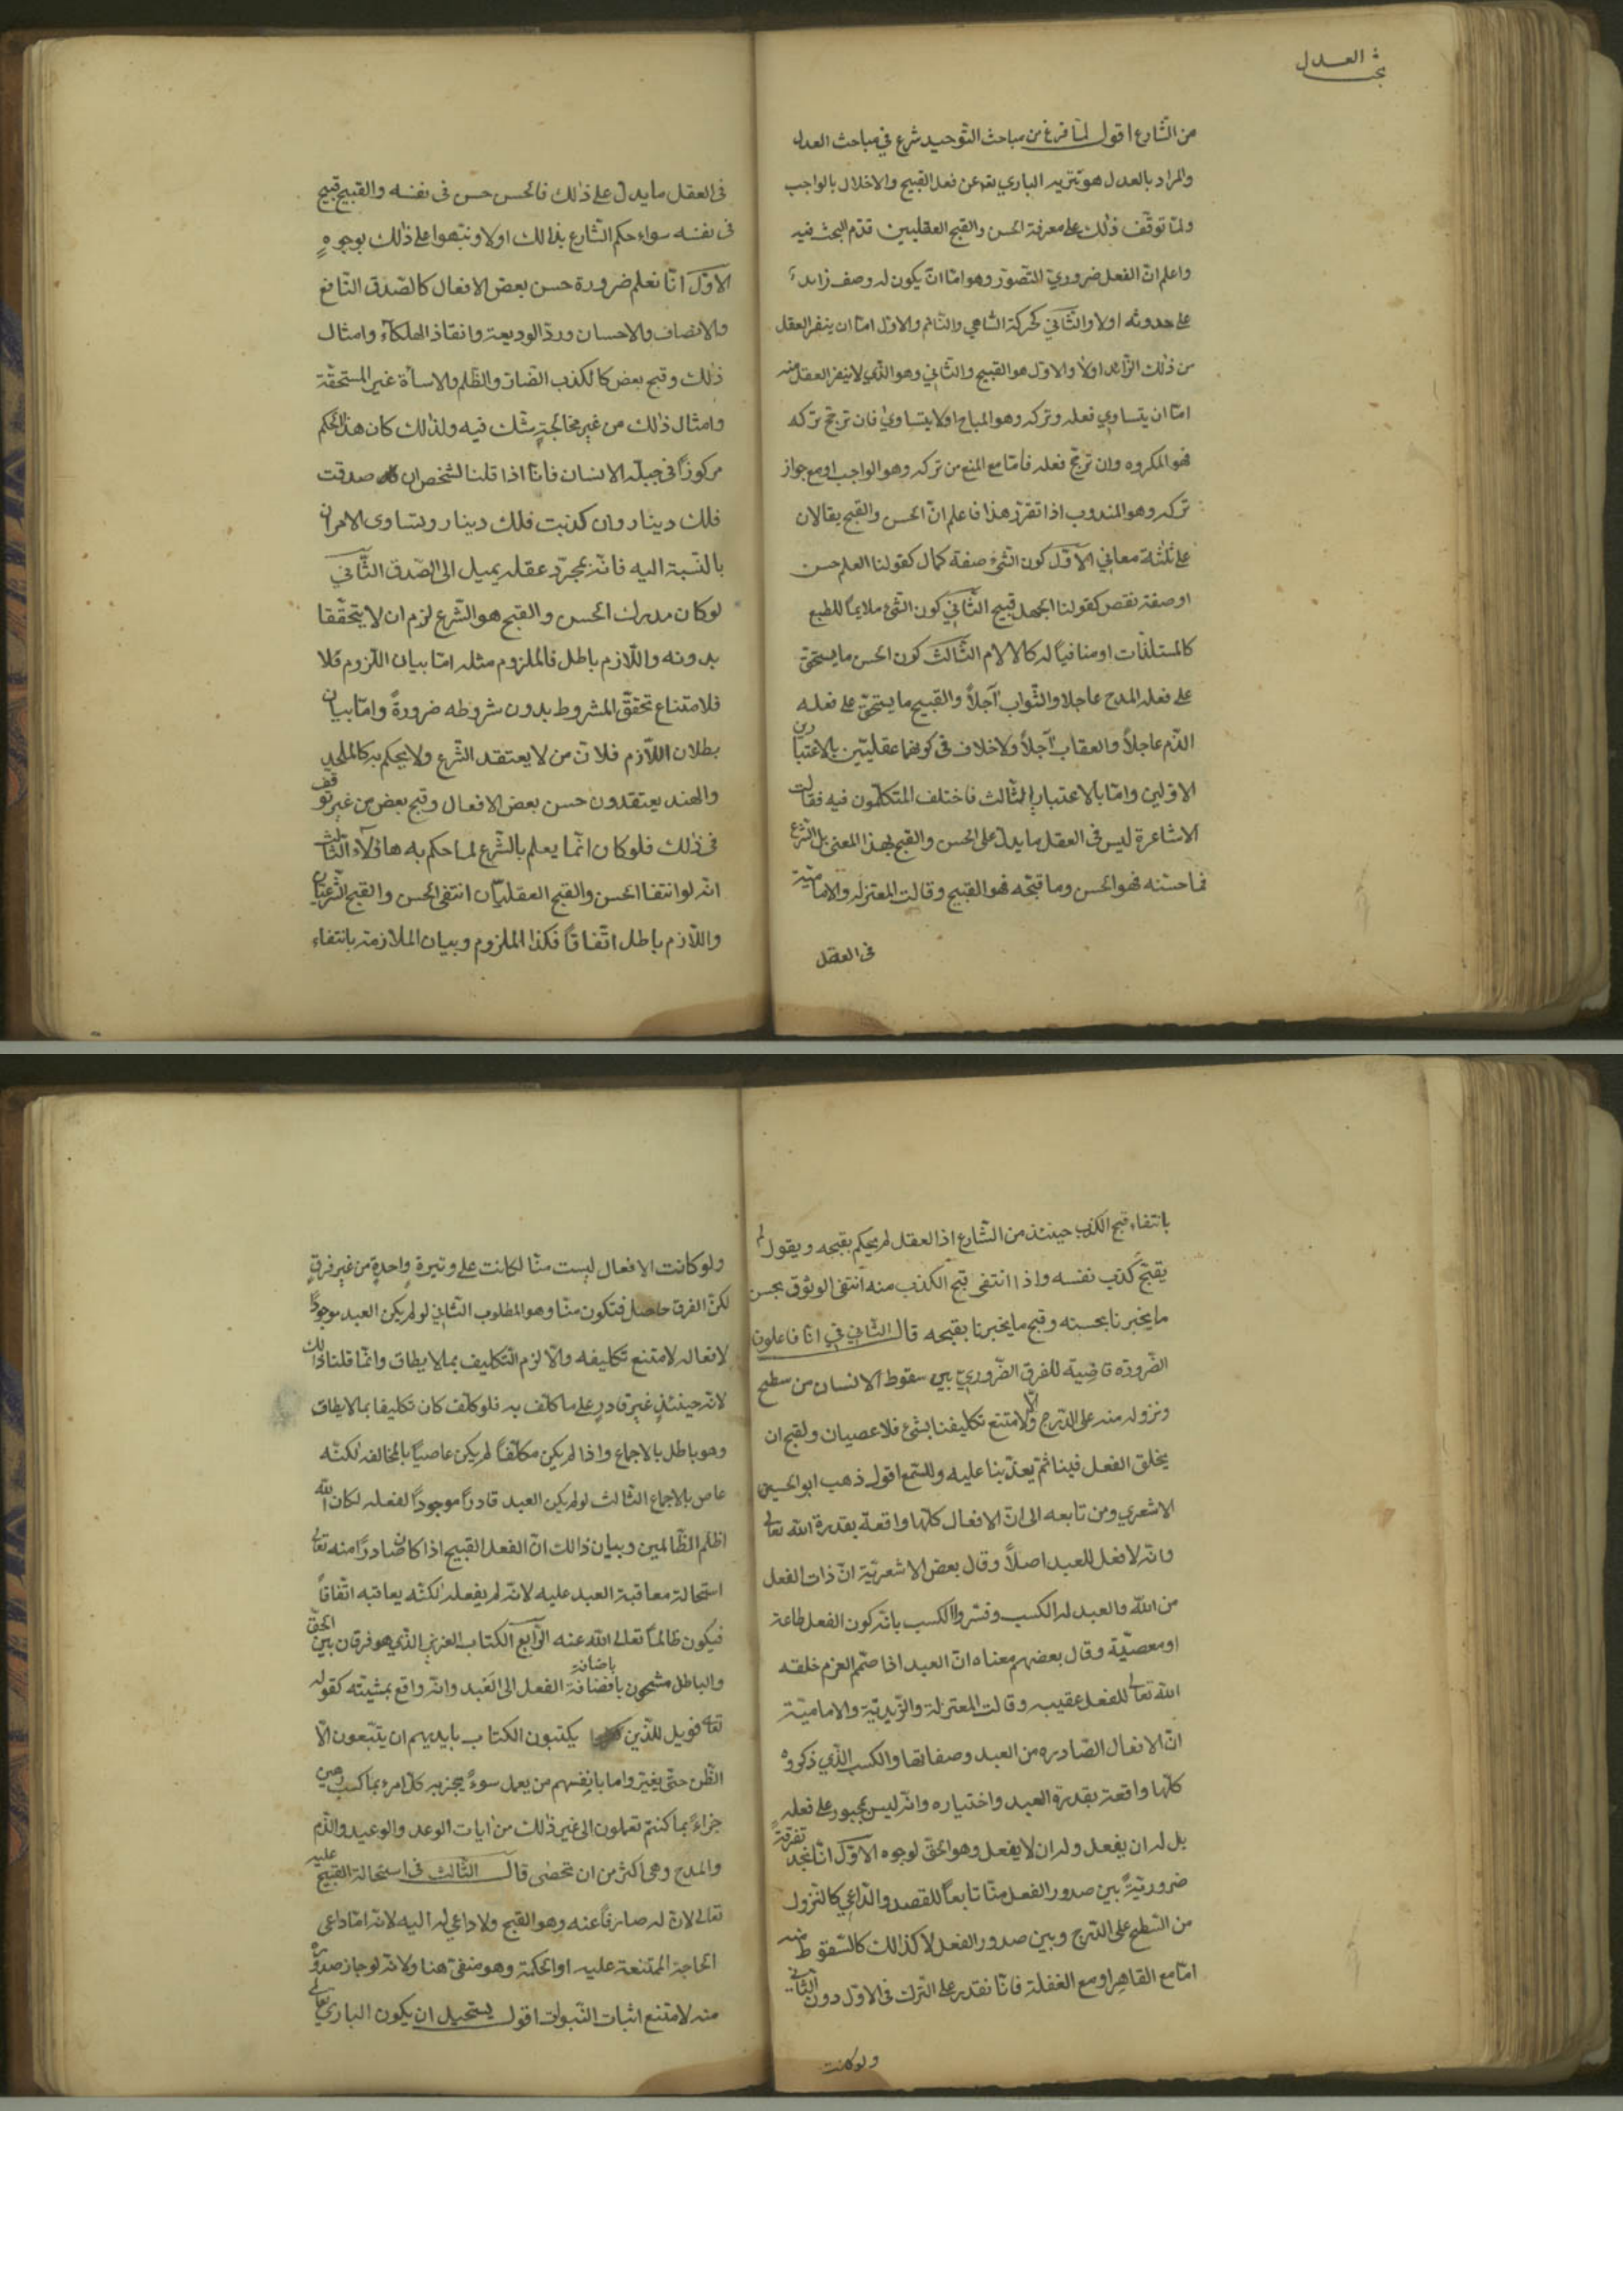 بحث العدل
من الشارع اقول لمّا فرغ من مباحث التّوحيد شرع في مباحث العدل
والمراد بالعدل هو تنزيه الباري تعه عن فعل القبيح والاخلال بالواجب
ولمّا توقّف ذلك على معرفة الحسن والقبح العقليين قدّم البحث فيه
واعلم انّ الفعل ضروريّ التّصوّر وهو امّا انّ يكون له وصف زايد
على حدوثه اولا والثّاني كحركة السّاهي والنّائم والاوّل امّا ان ينفر العقل
من ذلك الزّايد اولا والاوّل هو القبيح والثّاني وهو الّذي لا ينفر العقل منه
امّا ان يتساوي فعله وتركه وهو المباح اولا يتساوي فان ترجّح تركه
فهو المكروه وان ترجّح فعله فامّا مع المنع من تركه وهو الواجب او مع جواز
تركه وهو المندوب اذا تقرّر هذا فاعلم انّ الحسن والقبح يقالان
على ثلثة معاني الاوّل كون الشّئ صفة كمال كقولنا العلم حسن
او صفة نقص كقولنا الجهل قبيح الثّاني كون الشّئ ملايمًا للطبع
كالمستلذّات او منافيًا له كالالام الثّالث كون الحسن ما يستحقّ
على فعله المدح عاجلا والثّواب آجلاً والقبيح ما يستحقّ على فعله
الذّم عاجلاً والعقاب آجلاً ولاخلاف فى كونهما عقليّين بالاعتبارين
الاوّلين وامّا بالاعتبار الثّالث فاختلف المتكلّمون فيه فقالت
الاشاعرة ليس فى العقل ما يدلّ على الحسن والقبح بهذا المعنى بل الشّرع
فما حسّنه فهو الحسن وما قبّحه فهو القبيح وقالت المعتزلة والاماميّة
فى العقل
فى العقل ما يدلّ على ذلك فالحسن حسن فى نفسه والقبيح قبيح
فى نفسه سواء حكم الشّارع بذالك اولا ونبّهوا على ذلك بوجوهٍ
الاوّل انّا نعلم ضرورة حسن بعض الافعال كالصّدق النّافع
والانصاف والاحسان وردّ الوديعة وانقاذ الهلكاء وامثال
ذلك وقبح بعض كالكذب الضّار والظّلم والاساة غير المستحقّة
وامثال ذلك من غير مخالجةٍ شكّ فيه ولذلك كان هذا الحكم
مركوزًا في جبلّة الانسان فانّا اذا قلنا لشخص ان صدقت
فلك دينار وان كذبت فلك دينار وتساوى الامران
بالنّسبة اليه فانّه بمجرّد عقله يميل الى الصّدق الثّاني
لو كان مدرك الحسن والقبح هو الشّرع لزم ان لا يتحقّقا
بدونه واللّازم باطل فالملزوم مثله امّا بيان اللّزوم فلا
فلامتناع تحقّق المشروط بدون شروطه ضرورةً وامّا بيان
بطلان اللّازم فلانّ من لا يعتقد الشّرع ولا يحكم به كالملحد
والهند يعتقدون حسن بعض الافعال وقبح بعض من غير توقف
فى ذلك فلو كان انّما يعلم بالشّرع لما حكم به هاؤلاء الثّالث
انّه لو انتفا الحسن والقبح العقليّان انتفى الحسن والقبح الشّرعيّان
واللّازم باطل اتّفاقًا فكذا الملزوم وبيان الملازمة بانتفاء
بانتفاء قبح الكذب حينئذ من الشّارع اذا العقل لم يحكم بقبحه ويقول لم
يقبّح كذب نفسه واذا انتفى قبح الكذب منه انتفى الوثوق بحسن
ما يخبرنا بحسنه وقبح ما يخبرنا بقبحه قال الثّاني في انّا فاعلون
الضّرورة قاضية للفرق الضّروريّ بين سقوط الانسان من سطح
ونزوله منه على الدّرج والّا لامتنع تكليفنا بشئ فلا عصيان ولقبح ان
يخلق الفعل فينا ثمّ يعذّبنا عليه وللسّمع اقول ذهب ابو الحسين
الاشعري ومن تابعه الى انّ الافعال كلّها واقعة بقدرة الله تعالى
وانّه لا فعل للعبد اصلاً وقال بعض الاشعريّة انّ ذات الفعل
من الله والعبد له الكسب وفسّروا الكسب بانّه كون الفعل طاعة
او معصيّة وقال بعضهم معناه انّ العبد اذا صمّم العزم خلقه
الله تعالى للفعل عقيبه وقالت المعتزلة والزّيديّة والاماميّة
انّ الافعال الصّادره من العبد وصفاتها والكسب الّذي ذكروه
كلّها واقعة بقدرة العبد واختياره وانّه ليس بمجبور على فعله
بل له ان يفعل وله ان لا يفعل وهو الحقّ لوجوه الاوّل انّا نجد تفرقةً
ضروريّةً بين صدور الفعل منّا تابعاً للقصد والدّاعي كالنّزول
من السّطح على الدّرج وبين صدور الفعل لا كذالك كالسّقوط منه
امّا مع القاهر او مع الغفلة فانّا نقدر على الترك فى الاوّل دون الثّاني
ولو كانت
ولو كانت الافعال ليست منّا لكانت على وتيرةٍ واحدةٍ من غير فرقٍ
لكنّ الفرق حاصل فتكون منّا وهو المطلوب الثّاني لو لم يكن العبد موجودًا
لافعاله لامتنع تكليفه والّا لزم التّكليف بما لا يطاق وانّما قلنا ذالك
لانّه حينئذٍ غير قادرٍ على ما كلّف به فلو كلّف كان تكليفا بما لا يطاق
وهو باطل بالاجماع واذا لم يكن مكلّفًا لم يكن عاصيًا بالمخالفة لكنّه
عاص بالاجماع الثّالث لو لم يكن العبد قادرًا موجودًا لفعله لكان الله
اظلم الظّالمين وبيان ذالك انّ الفعل القبيح اذا كان صادرًا منه تعالى
استحالة معاقبة العبد عليه لانّه لم يفعله لكنّه يعاقبه اتّفاقاً
فيكون ظالماً تعالى الله عنه الرّابع الكتاب العزيز الّذي هو فرقان بين الحقّ
والباطل مشحون بافضافة باضافة الفعل الى العبد وانّه واقع بمشيّته كقوله
تعه فويل للّذين يكتبون الكتاب بايديهم ان يتّبعون الّا
الظّن حتّى يغيّر واما بانفسهم من يعمل سوءً يجز به كلّ امرء بما كسب رهين
جزاءً بما كنتم تعملون الى غير ذلك من ايات الوعد والوعيد والذّم
والمدح وهى اكثر من ان تحصى قال الثّالث فى استحالة القبيح عليه
تعالى لانّ له صارفًا عنه وهو القبح ولا داعي له اليه لانّه امّا داعى
الحاجة الممتنعة عليه او الحكمة وهو منفىّ هنا ولانّه لو جاز صدوره
منه لامتنع اثبات النّبوات اقول يستحيل ان يكون الباري تعالى